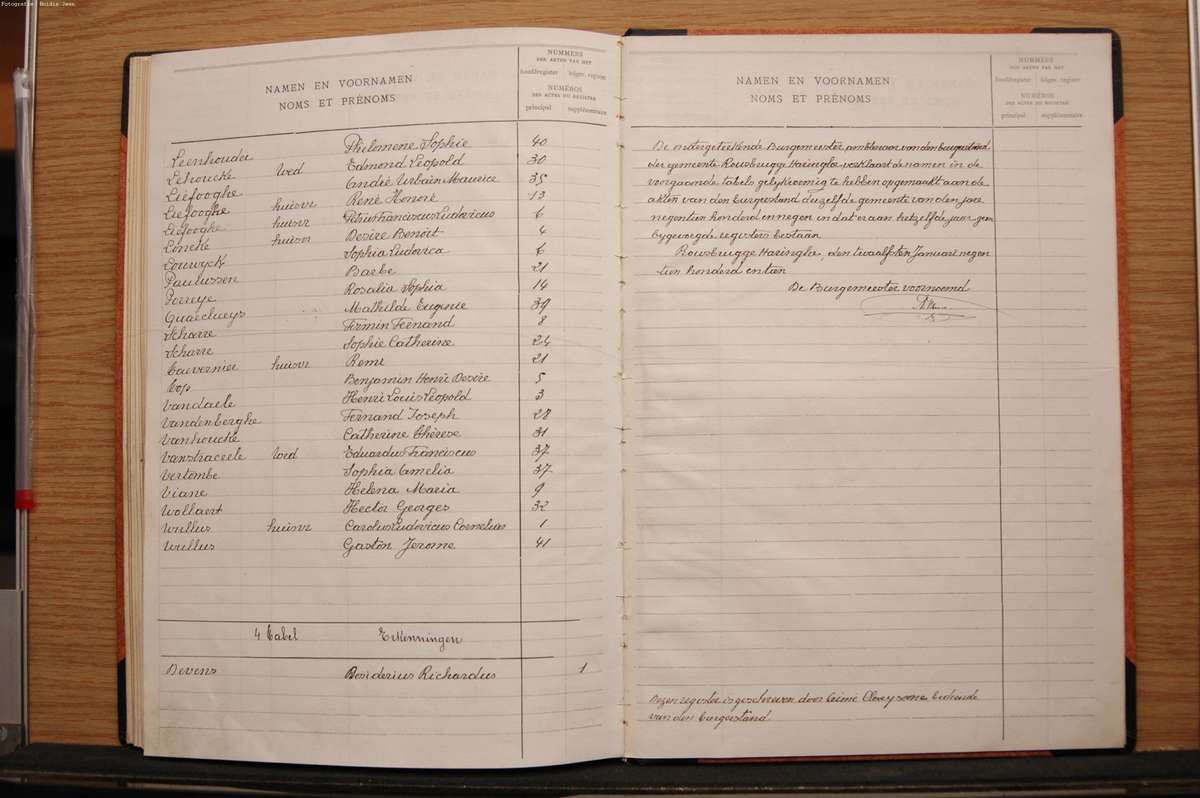 Fotografie: Boidin Jean
NAMEN EN VOORNAMEN
NOMS ET PRÉNOMS
NUMMERS
DER AKTEN VAN HET
hoofdregister bijgev. register
NUMÉROS
DES ACTES DU REGISTRE
principal supplémentaire
Leenhouder Philomene Sophie 40
Lehoucke wed Edmond Léopold 30
Liefooghe André Urbain Maurice 35
Liefooghe huisvr René Honoré 13
Liefooghe huisvr Petrus Franciscus Ludovicus 6
Loncke huisvr Desiré Benoit 4
Louwyck Sophia Ludovica 6
Paulussen Barbe 21
Porreye Rosalie Sophia 14
Quaeclueys Mathilde Eugenie 39
Scharre Firmin Fernand 8
Scharre Sophie Catherine 24
Tavernier huisvr Remi 21
Top Benjamin Henri Desiré 5
Vandaele Henri Louis Léopold 3
Vandenberghe Fernand Joseph 28
Vanhoucke Catherine Thérèse 31
Vanstraceele Wed Eduardus Franciscus 37
Vertombe Sophia Amelia 37
Viane Helena Maria 9
Wollaert Hector Georges 32
Wullus huisvr Carolus Ludovicus Cornelius 1
Wullus Gaston Jerome 41
4 Tabel Erkenningen
Devens Desiderius Richardus 1
NAMEN EN VOORNAMEN
NOMS ET PRÉNOMS
NUMMERS
DER AKTEN VAN HET
hoofdregister bijgev. register
NUMÉROS
DES ACTES DU REGISTRE
principal supplémentaire
De ondergeteekende Burgemeester ambtenaar van den burgerstand
der gemeente Rousbrugge Haringhe verklaart de namen in de
voorgaande tabels gelijkvormig te hebben opgemaakt aan de
akten van den burgerstand dezelfde gemeente van den jare
negentien honderd en negen in dat er aan hetzelfde jaar geen
bijgevoegde registers bestaan
Rousbrugge Haringhe, den twaalfsten Januari negen
tien honderd en tien
De Burgemeester voornoemd
Dezen register is geschreven door Cleenewerck bediende
van den burgerstand